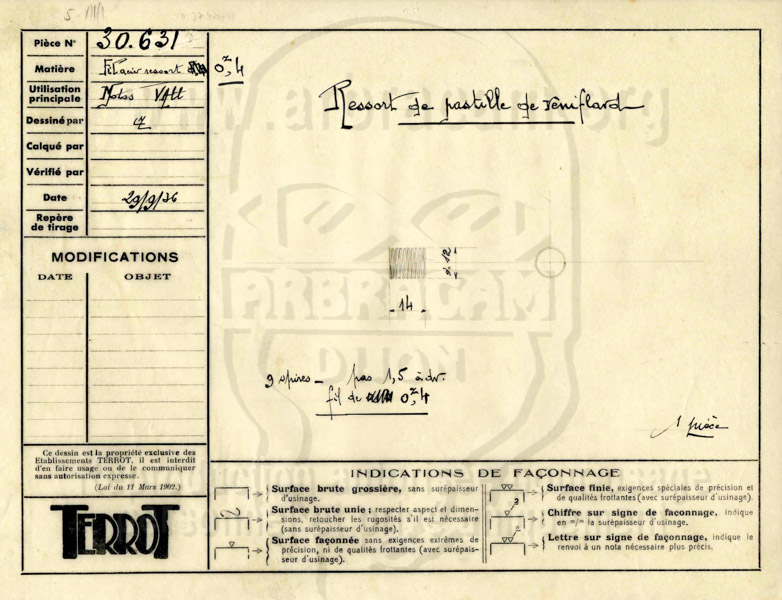 Pièce N° 30.631
Matière Fil acier ressort 0,4
Utilisation principale Motos VAtt
Dessiné par
Calqué par
Vérifié par
Date 29/9/36
Repère de tirage
MODIFICATIONS
DATE OBJET
Ce dessin est la propriété exclusive des
Etablissements TERROT, il est interdit
d'en faire usage ou de le communiquer
sans autorisation expresse.
(Loi du 11 Mars 1902.)
TERROT
Ressort de pastille de réniflard
ø 12
14
9 spires - pas 1,5 à dr.
fil de 0,4
1 pièce
www.arbracam.org
ARBRACAM
DIJON
INDICATIONS DE FAÇONNAGE
Surface brute grossière, sans surépaisseur
d'usinage.
Surface brute unie : respecter aspect et dimen-
sions, retoucher les rugosités s'il est nécessaire
(sans surépaisseur d'usinage).
Surface façonnée sans exigences extrêmes de
précision, ni de qualités frottantes (avec surépais-
seur d'usinage).
Surface finie, exigences spéciales de précision et
de qualités frottantes (avec surépaisseur d'usinage).
Chiffre sur signe de façonnage, indique
en m/m la surépaisseur d'usinage.
Lettre sur signe de façonnage, indique le
renvoi à un nota nécessaire plus précis.